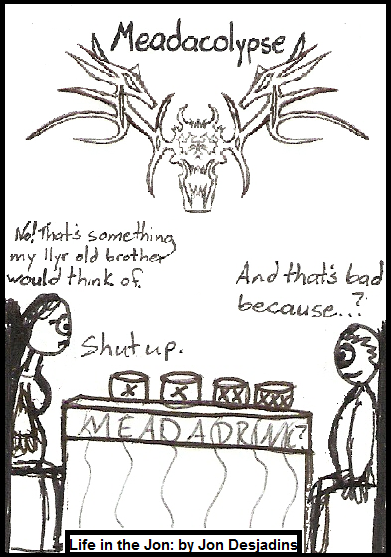 Meadacolypse
No! That's something
my 11yr old brother
would think of.
And that's bad
because...?
Shut up.
X X XX XXX
MEADADRINK?
Life in the Jon: by Jon Desjadins